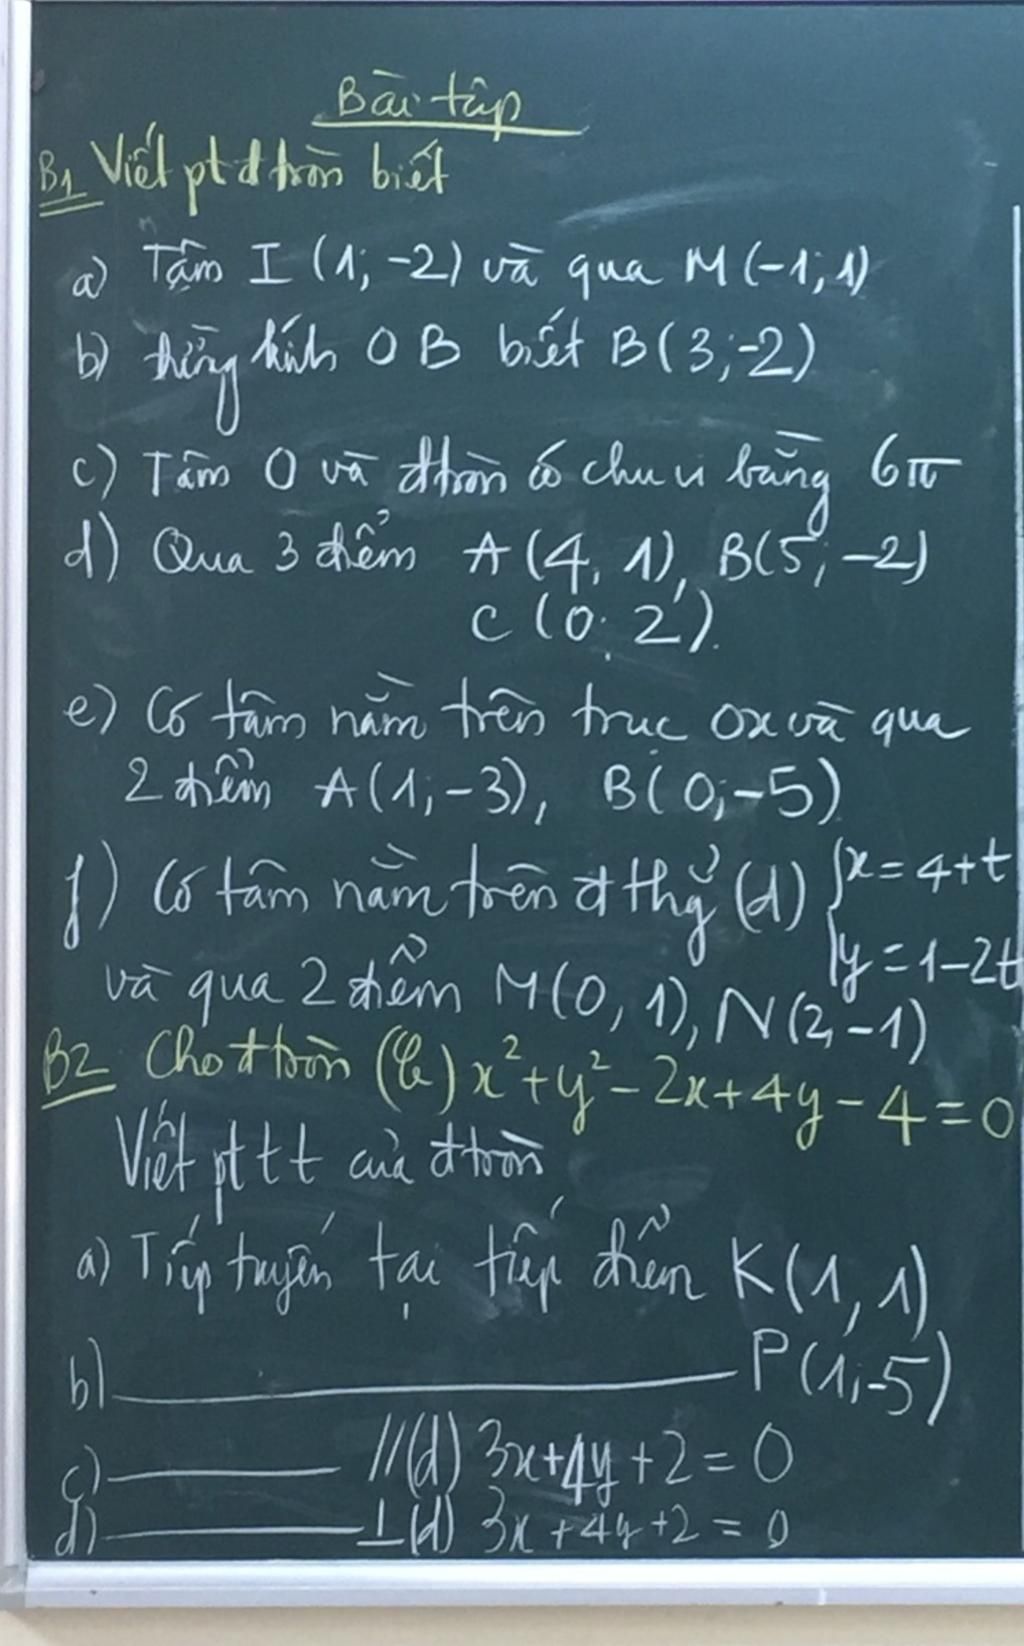 Bài tập
B1 Viết pt đ tròn biết
a) Tâm I (1; -2) và qua M(-1; 1)
b) đường kính OB biết B(3; -2)
c) Tâm O và đ tròn có chu vi bằng 6π
d) Qua 3 điểm A(4, 1), B(5; -2)
C(0; 2).
e) Có tâm nằm trên trục Ox và qua
2 điểm A(1; -3), B(0; -5)
f) Có tâm nằm trên đ thẳg (d) { x = 4+t
y = 1-2t
và qua 2 điểm M(0, 1), N(2, -1)
B2 Cho đ tròn (C) x² + y² - 2x + 4y - 4 = 0
Viết pt tt của đ tròn
a) Tiếp tuyến tại tiếp điểm K(1, 1)
b) ———— P(1; -5)
c) ———— // (d) 3x+4y+2 = 0
d) ———— ⊥ (d) 3x+4y+2 = 0